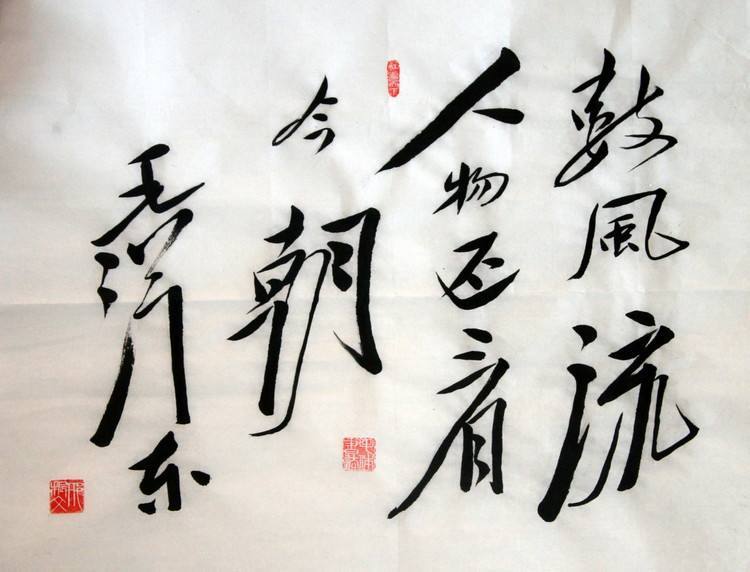 数風流
人物还看
今朝
毛泽东